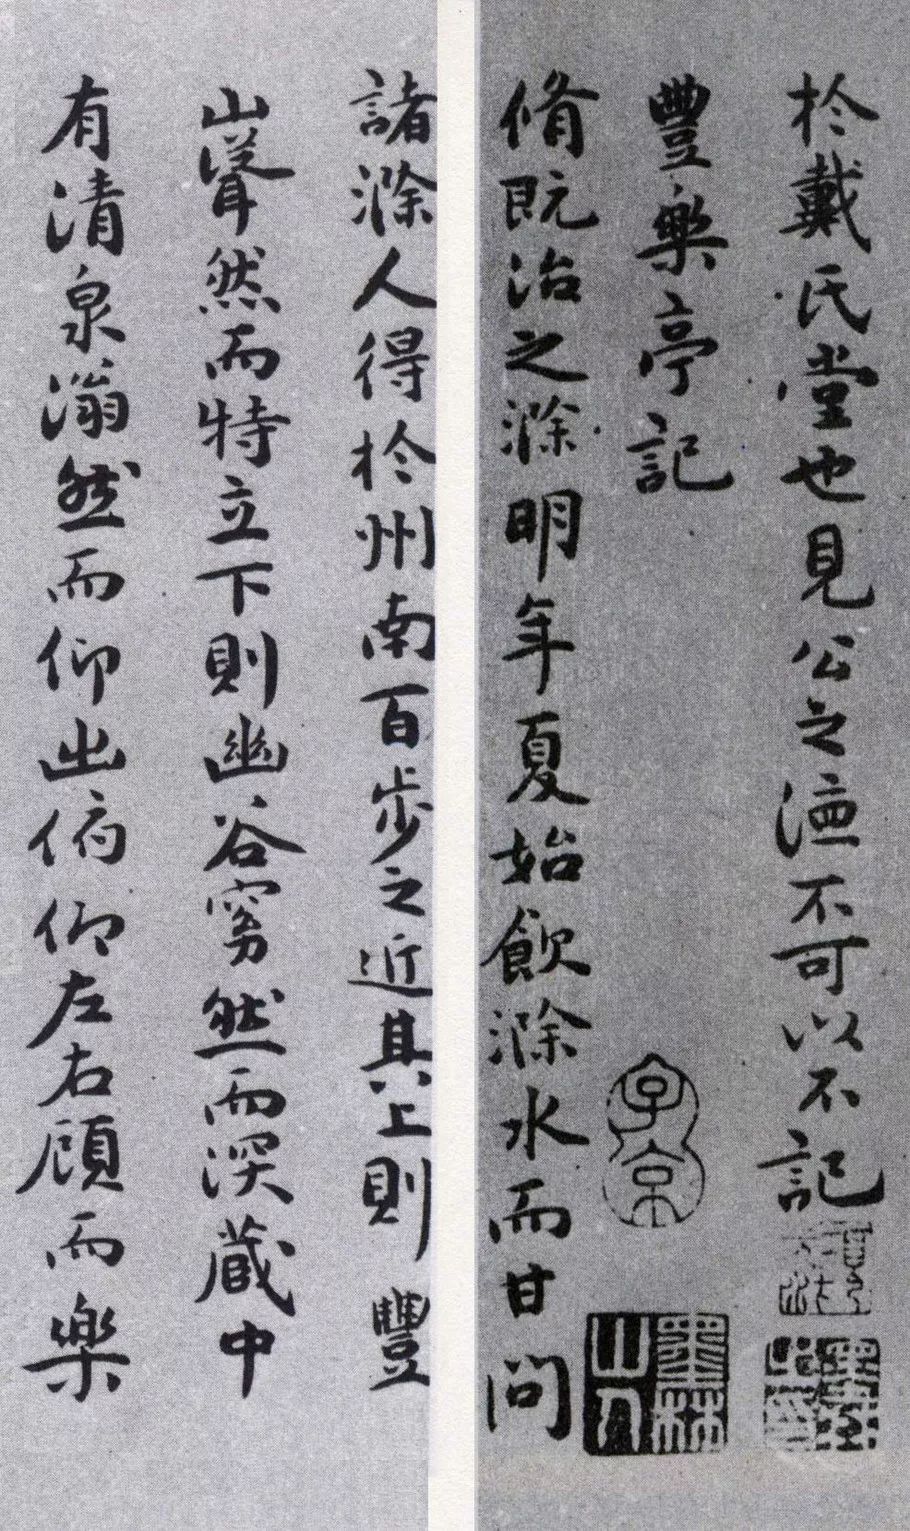 於戴氏堂也見公之不可以不記
豐樂亭記
子京
墨林山人
脩既治之滁明年夏始飲滁水而甘問
諸滁人得於州南百步之近其上則豐
山聳然而特立下則幽谷窈然而深藏中
有清泉滃然而仰出俯仰左右顧而樂